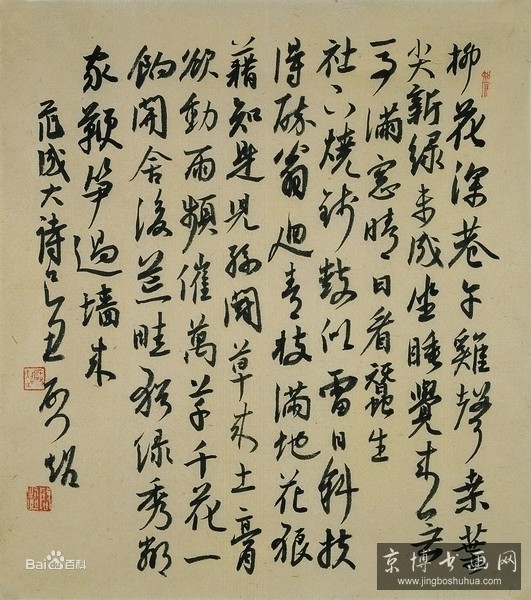 柳花深巷午雞聲桑葉
尖新綠未成坐睡覺來無
一事滿窓晴日看蠶生
社下燒錢鼓似雷日斜扶
得醉翁迴青枝滿地花狼
藉知是兒孫鬪草來土膏
欲動雨頻催萬草千花一
餉開舍後荒畦猶綠秀鄰
家鞭筍過墻來
范成大詩乙丑
Bai度百科
京博书画网
www.jingboshuhua.com